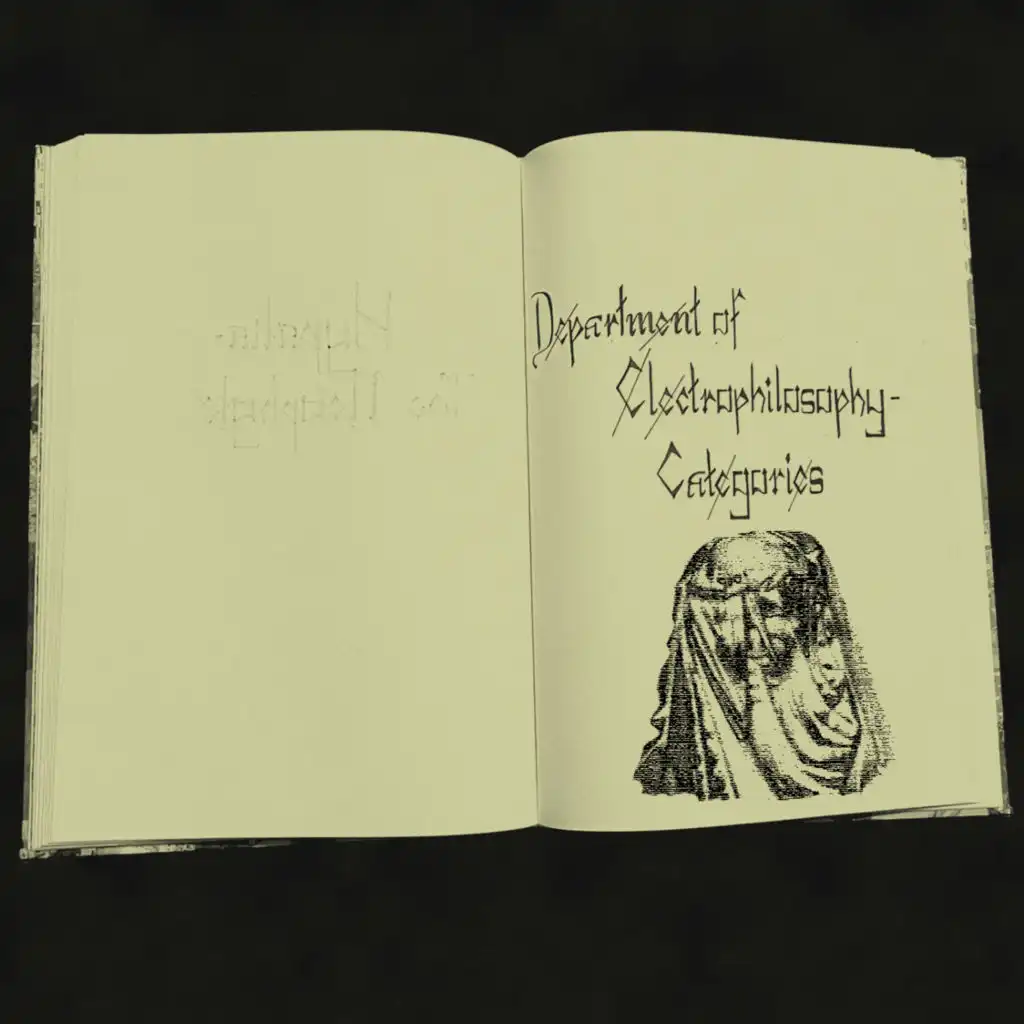 Department of
Electrophilosophy-
Categories